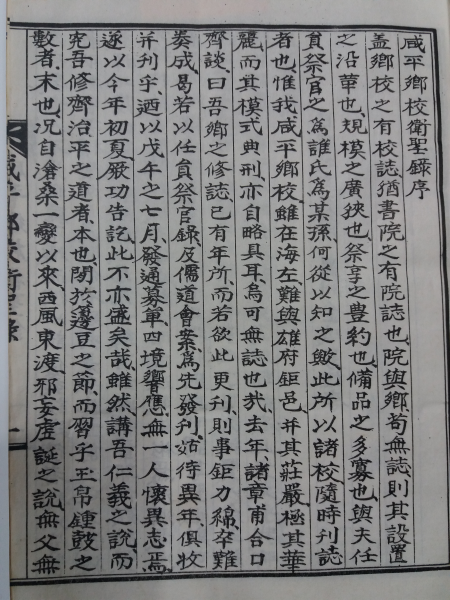 咸平鄉校衛聖錄序
盖鄉校之有校誌猶書院之有院誌也院與鄉苟無誌則其設置
之沿革也規模之廣狹也祭享之豊約也備品之多寡也與夫任
負祭官之爲誰氏爲某孫何從以知之歟此所以諸校隨時刊誌
者也惟我咸平鄉校雖在海左難與雄府鉅邑并其莊嚴極其華
麗而其模式典刑亦自略具耳烏可無誌也哉去年諸章甫合口
齊談曰吾鄉之修誌已有年所而若欲此更刊則事鉅力綿卒難
奏成曷若以任負祭官錄及儒道會案爲先發刊姑待異年俱收
并刊乎迺以戊午之七月發通募單四境響應無一人懷異志焉
遂以今年初夏厥功告訖此不亦盛矣哉雖然講吾仁義之說而
究吾修齊治平之道者本也閉於籩豆之節而習乎玉帛鍾鼓之
數者末也况自滄桑一變以來西風東渡邪妄虛誕之說無父無
咸平鄉校衛聖錄
一